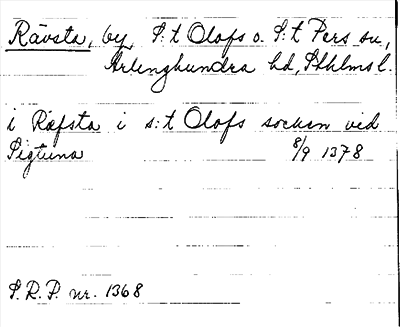 Rävsta, by, S:t Olofs o. S:t Pers sn,
Ärlinghundra hd, Sthlms l.
i Räfsta i s:t Olofs socken ved
Sigtuna 8/9 1378
S.R.P. nr. 1368